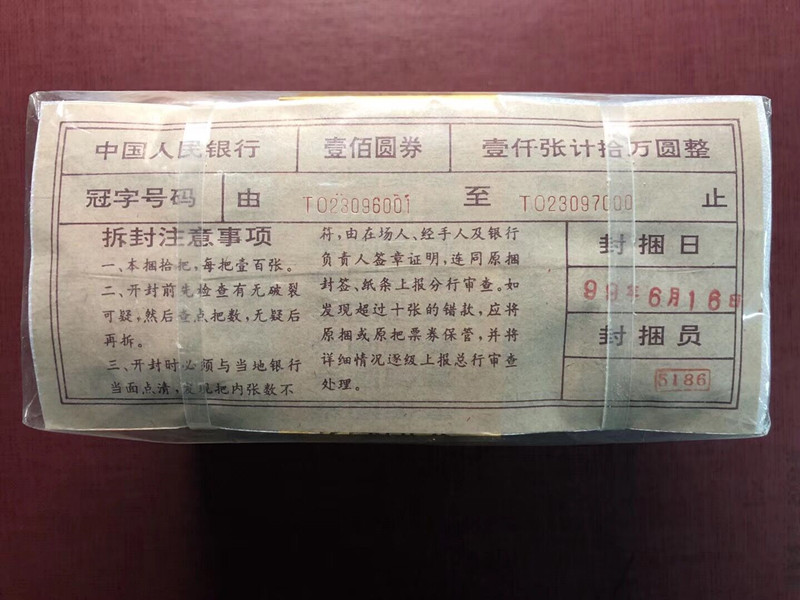 中国人民银行 壹佰圆券 壹仟张计拾万圆整
冠字号码 由 TO23096001 至 TO23097000 止
拆封注意事项
一、本捆拾把，每把壹百张。
二、开封前先检查有无破裂
可疑，然后查点把数，无疑后
再拆。
三、开封时必须与当地银行
当面点清，发现把内张数不
符，由在场人、经手人及银行
负责人签章证明，连同原捆
封签、纸条上报分行审查。如
发现超过十张的错款，应将
原捆或原把票券保管，并将
详细情况逐级上报总行审查
处理。
封捆日
99年6月16日
封捆员
5186